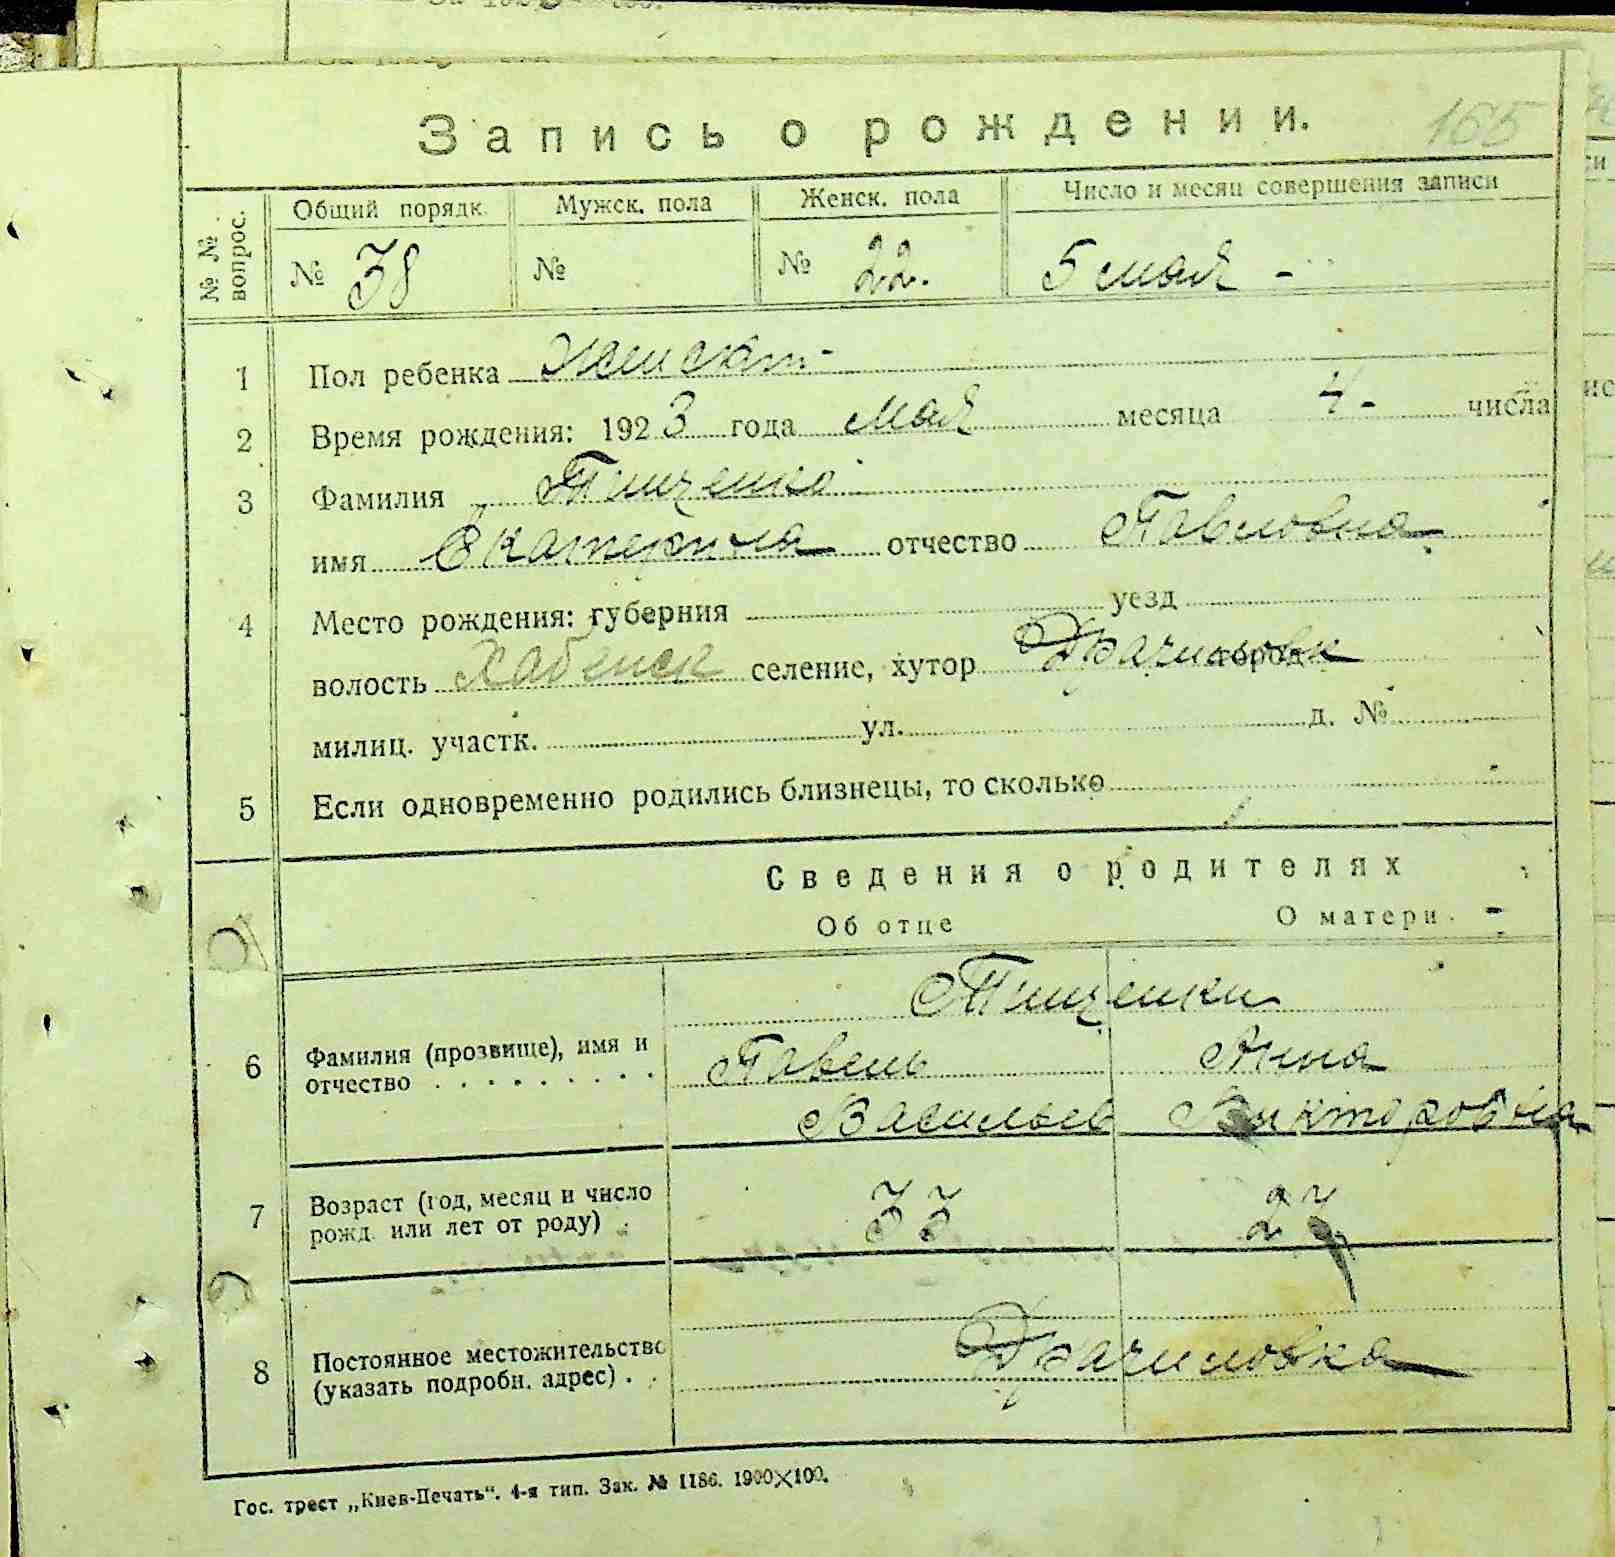 Запись о рождении. 165
№ № вопрос. Общий порядк. Мужск. пола Женск. пола Число и месяц совершения записи
№ 38 № № 22. 5 мая -
1 Пол ребенка женск.
2 Время рождения: 1923 года мая месяца 4 - числа
3 Фамилия Тищенко
имя Екатерина отчество Павловна
4 Место рождения: губерния уезд
волость Хабенск селение, хутор город
милиц. участк. ул. д. №
5 Если одновременно родились близнецы, то сколько
Сведения о родителях
Об отце О матери -
Тищенки
6 Фамилия (прозвище), имя и отчество Павель Анна
Васильев Викторовна
7 Возраст (год, месяц и число рожд. или лет от роду) 33 27
8 Постоянное местожительство (указать подробн. адрес) Драчиловка
Гос. трест „Киев-Печать“. 4-я тип. Зак. № 1186. 1900×100.